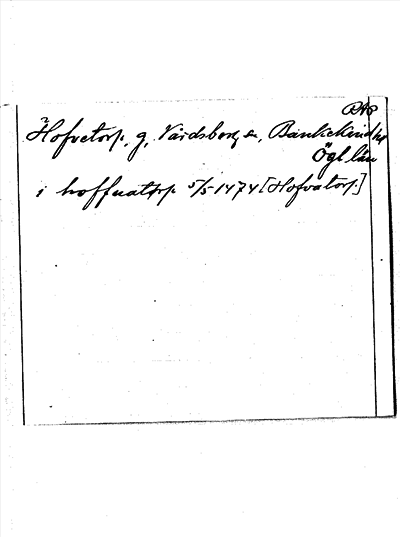 RAP
Hofvetorp, g, Vårdsberg sn, Bankekind hd
Ögl. län
i hoffuatorp 5/5 1474 [Hofvatorp.]